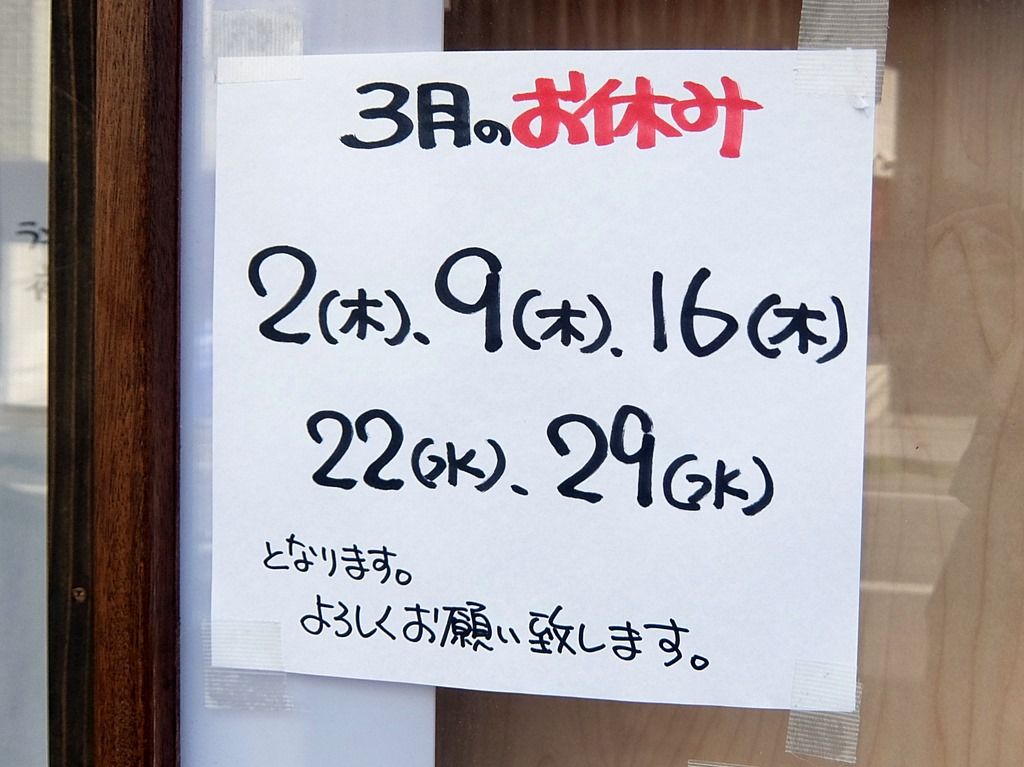 3月のお休み
2(木)、9(木)、16(木)
22(水)、29(水)
となります。
よろしくお願い致します。